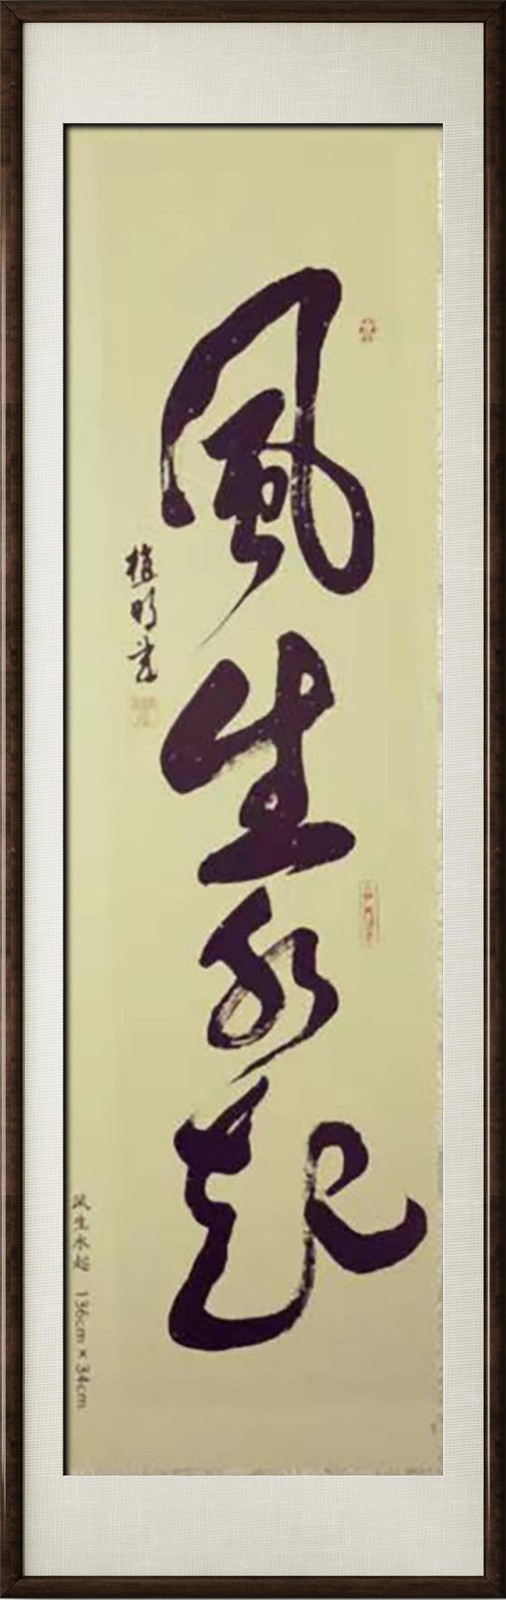 風生水起
植明書
风生水起 136cm×34cm